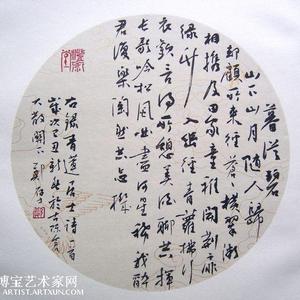 暮從碧
山下山月隨人歸
却顧所來徑蒼蒼橫翠微
相携及田家童稚開荆扉
綠竹入幽徑青蘿拂行
衣歡言得所憩美酒聊共揮
長歌吟松風曲盡河星稀我醉
君復樂陶然共忘機
右録青蓮居士詩一首
歲次
大散關下
博宝艺术家网
ARTIST.ARTXUN.COM